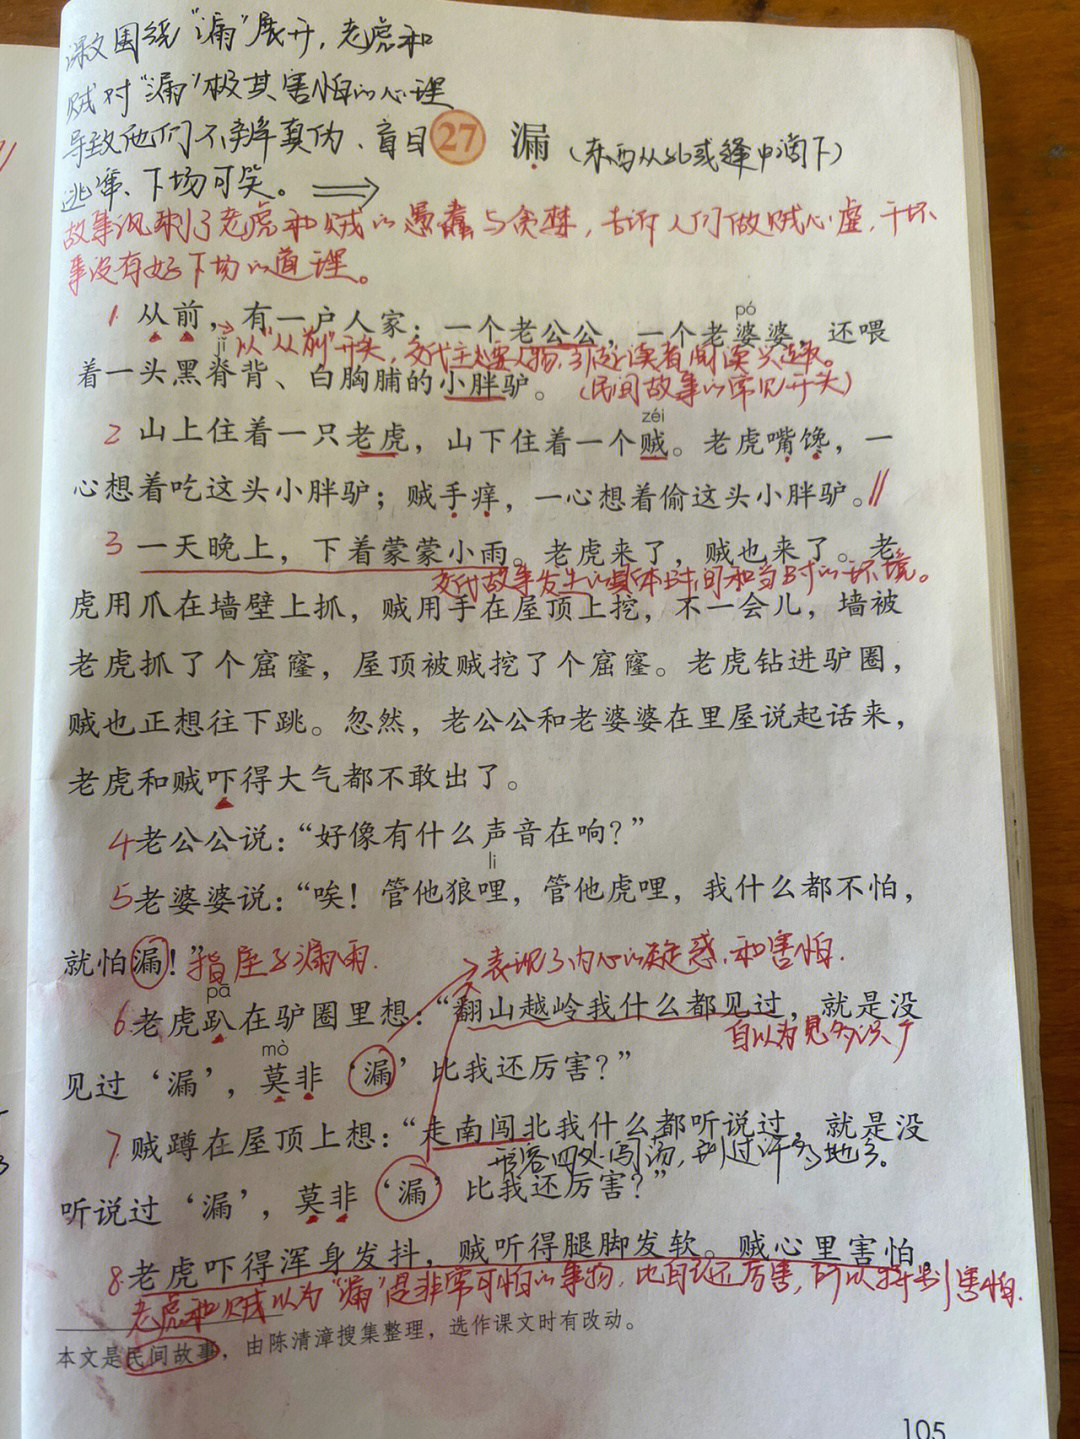 课文围绕“漏”展开，老虎和
贼对“漏”极其害怕的心理
导致他们不辨真伪、盲目
逃窜、下场可笑。
27 漏（东西从孔或缝中滴下）
故事讽刺了老虎和贼的愚蠢与贪婪，告诉人们做贼心虚，干坏
事没有好下场的道理。
pó
1 从前，有一户人家：一个老公公，一个老婆婆，还喂
jǐ 以“从前”开头，交代主要人物，引起读者阅读兴趣。
着一头黑脊背、白胸脯的小胖驴。（民间故事的常见开头）
zéi
2 山上住着一只老虎，山下住着一个贼。老虎嘴馋，一
心想着吃这头小胖驴；贼手痒，一心想着偷这头小胖驴。
3 一天晚上，下着蒙蒙小雨。老虎来了，贼也来了。老
交代故事发生的具体时间和当时的环境。
虎用爪在墙壁上抓，贼用手在屋顶上挖，不一会儿，墙被
老虎抓了个窟窿，屋顶被贼挖了个窟窿。老虎钻进驴圈，
贼也正想往下跳。忽然，老公公和老婆婆在里屋说起话来，
老虎和贼吓得大气都不敢出了。
4 老公公说：“好像有什么声音在响？”
li
5 老婆婆说：“唉！管他狼哩，管他虎哩，我什么都不怕，
就怕漏！”指屋子漏雨.
表现了内心的疑惑和害怕.
pā
6 老虎趴在驴圈里想：“翻山越岭我什么都见过，就是没
自以为见多识广
mò
见过‘漏’，莫非‘漏’比我还厉害？”
7 贼蹲在屋顶上想：“走南闯北我什么都听说过，就是没
形容四处闯荡，到过许多地方。
听说过‘漏’，莫非‘漏’比我还厉害？”
8. 老虎吓得浑身发抖，贼听得腿脚发软。贼心里害怕，
老虎和贼以为“漏”是非常可怕的事物，比自己还厉害，所以特别害怕.
本文是民间故事，由陈清漳搜集整理，选作课文时有改动。
105